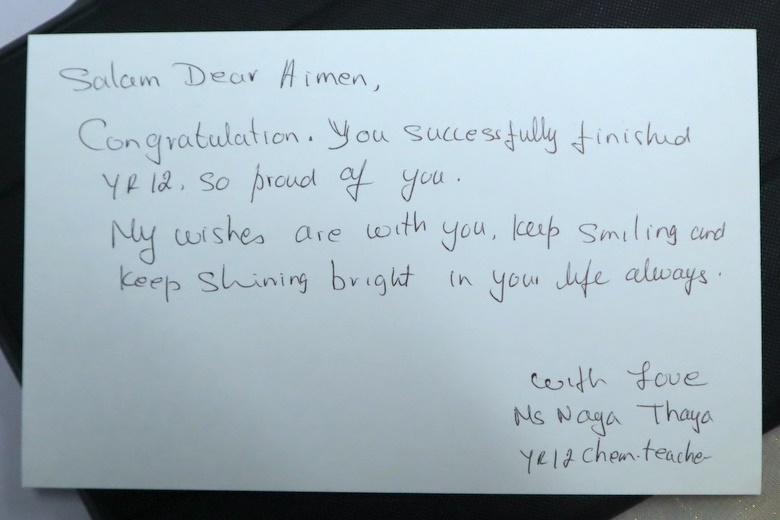 Salam Dear Aimen,
Congratulation. You successfully finished
YR 12. So proud of you.
My wishes are with you, keep smiling and
keep shining bright in your life always.
with love
Ms Naga Thaya
YR12 Chem.teacher